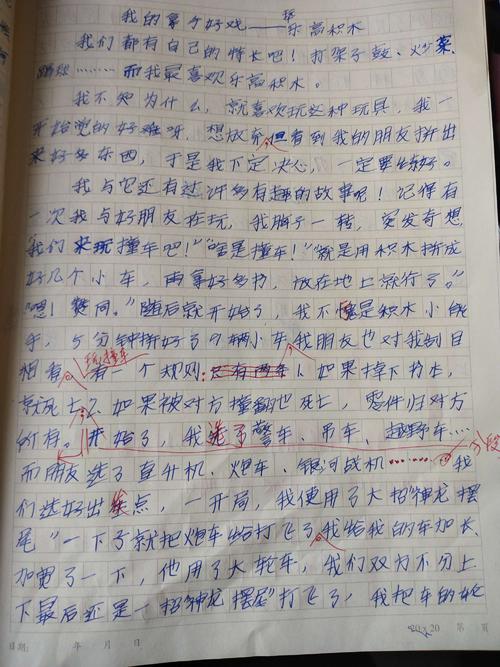 我的拿手好戏——搭乐高积木
我们都有自己的特长吧！打架子鼓、炒菜、
跳舞……而我最喜欢乐高积木。
我不知为什么，就喜欢玩这种玩具，我一
开始觉的好难呀，想放弃但看到我的朋友拼出
来好多东西，于是我下定决心，一定要练好。
我与它还有过许多有趣的故事呢！记得有
一次我与好朋友在玩，我脑子一转，突发奇想
我们来玩撞车吧！”“啥是撞车！”“就是用积木拼成
好几个小车，两拿好多书，放在地上就行了。”
“嗯！赞同。”随后就开始了，我不愧是积木小能
手，5分钟拼好了9辆小车我朋友也对我刮目
相看。玩撞车有一个规则：1、如果掉下书本，
就死亡2、如果被对方撞翻也死亡，零件归对方
所有。开始了，我选了警车、吊车、越野车……
而朋友选了直升机、炮车、银河战机……我 分段
们选好出生点，一开局，我使用了大招“神龙摆
尾”一下子就把炮车给打飞了我给我的车加长、
加宽了一下，他用了大轮车，我们双方不分上
下最后还是一招“神龙摆尾”打飞了，我把车的轮
20×20 第 页
日期： 年 月 日